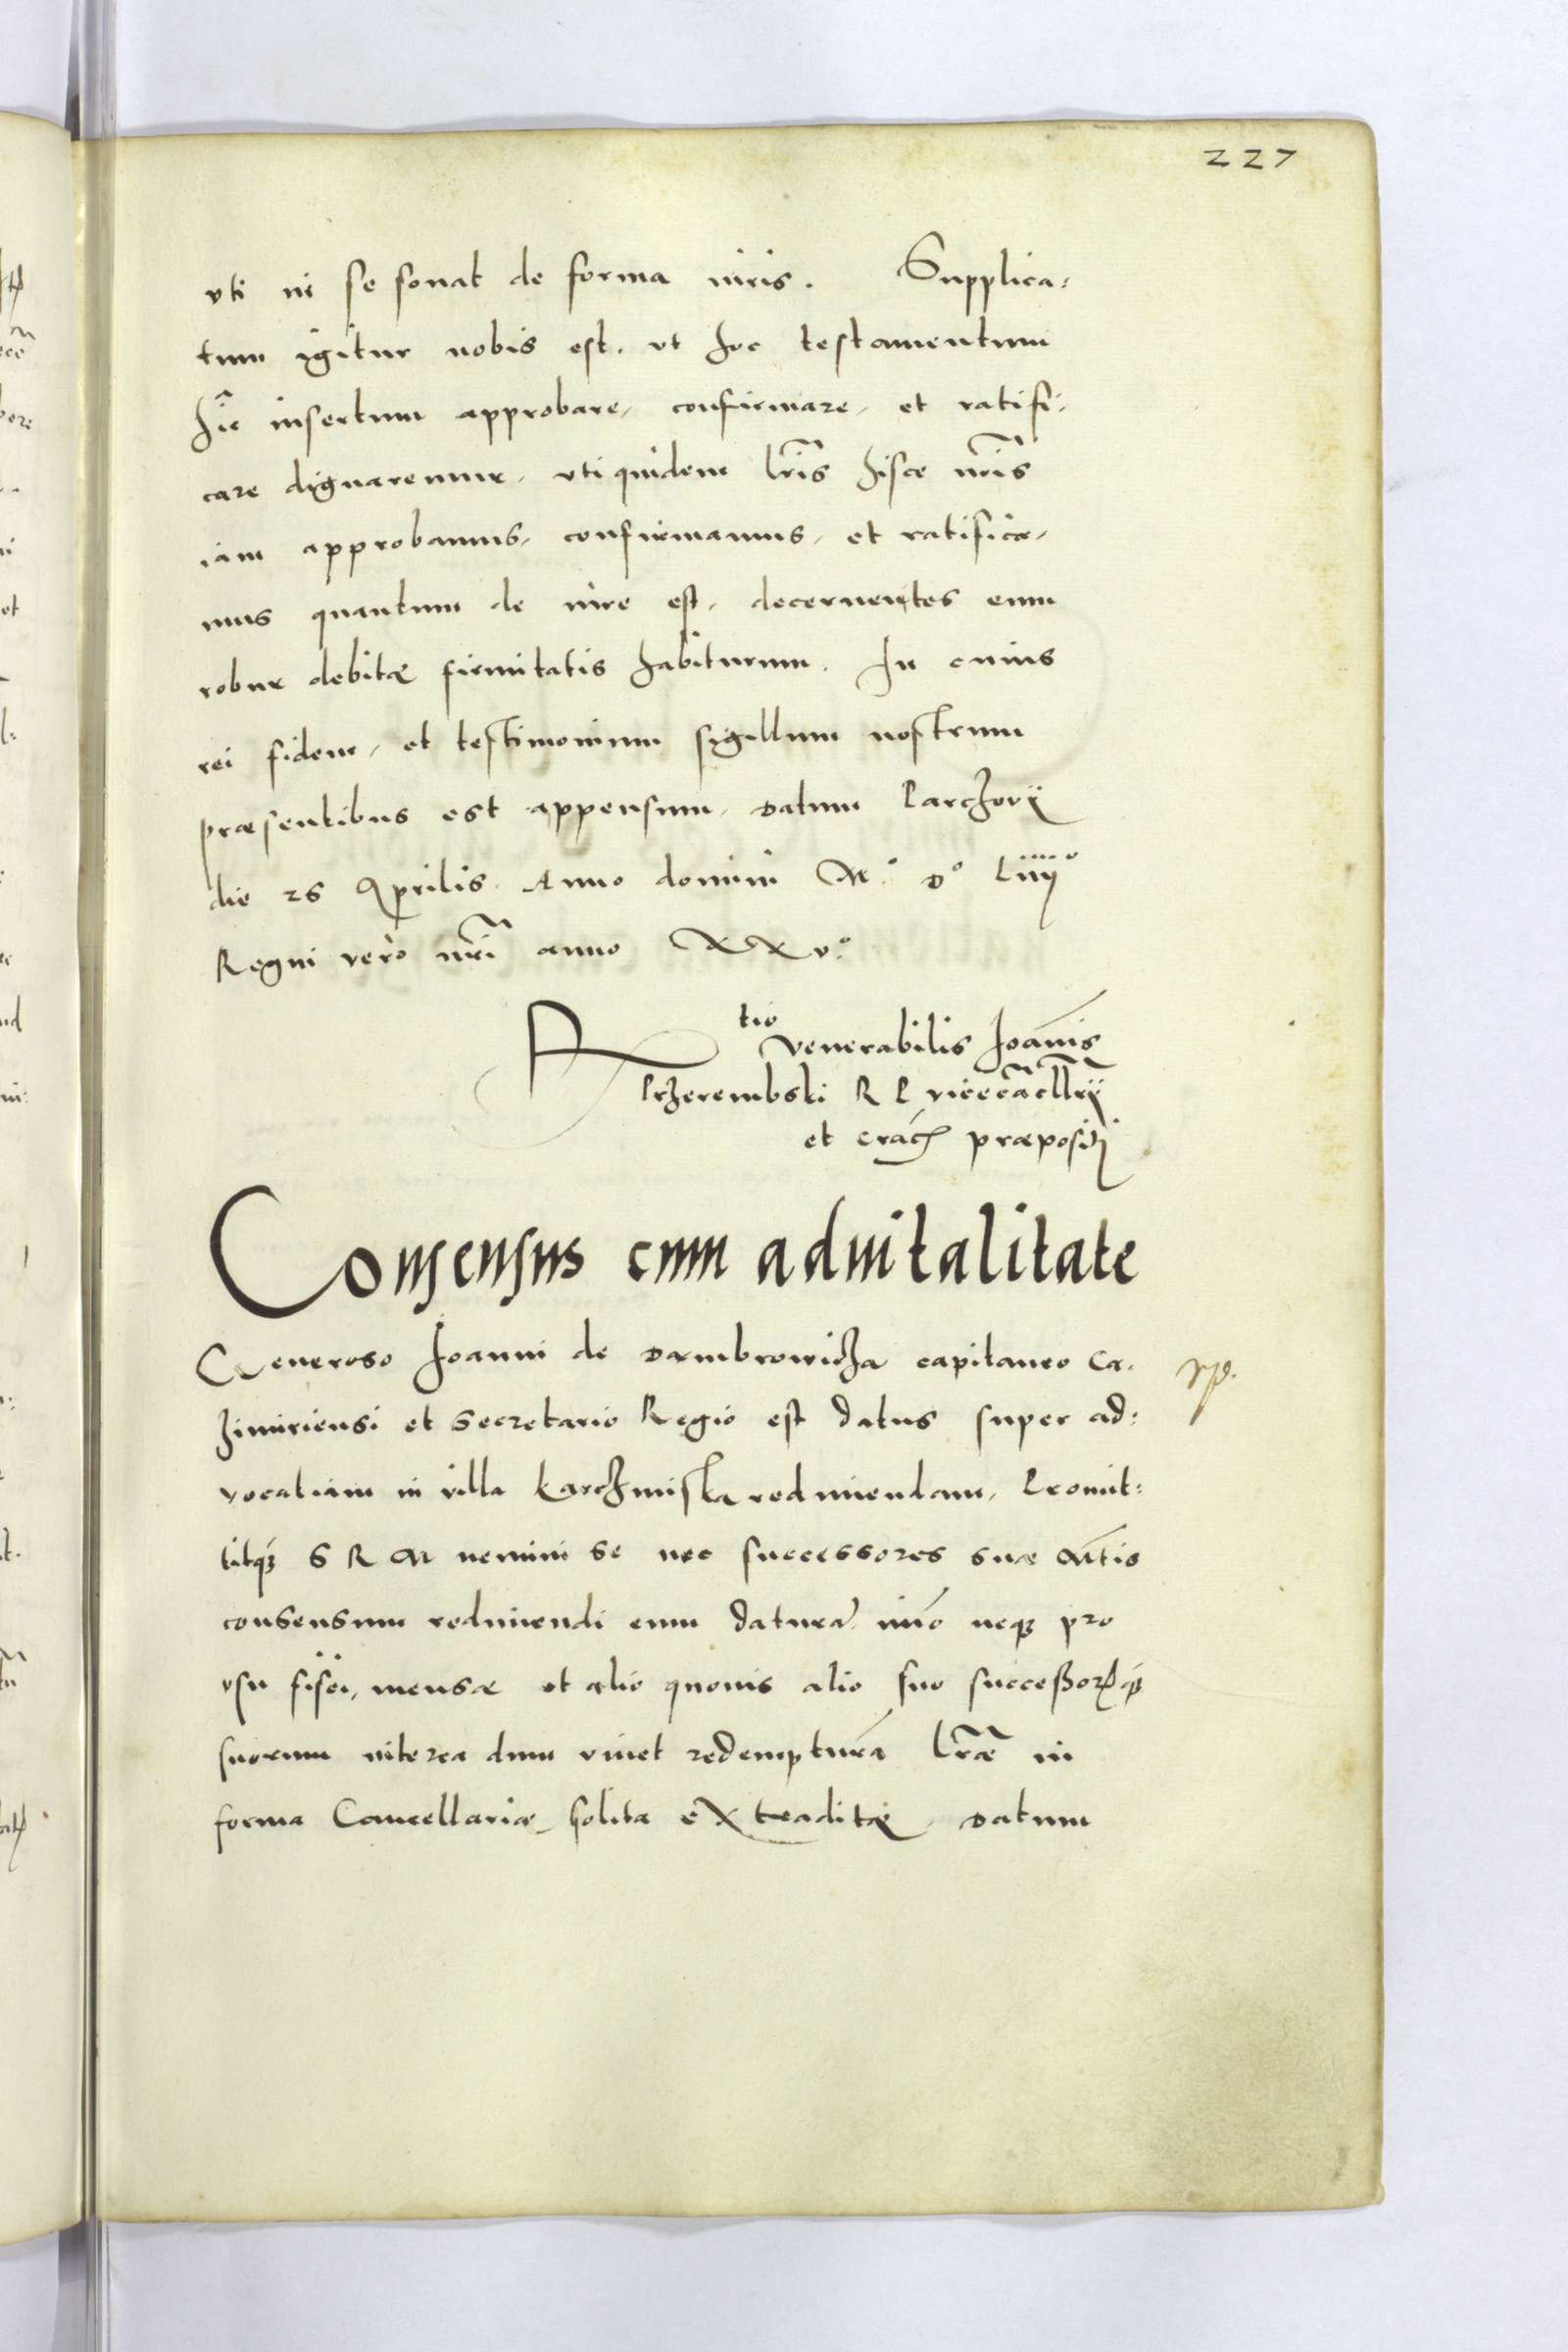 227
uti in se sonat de forma iuris. Supplica:
tum igitur nobis est. ut hoc testamentum
hic insertum approbare, confirmare, et ratifi:
care dignaremur, uti quidem lr̃is hisce nr̃is
iam approbamus, confirmamus, et ratifica-
mus quantum de iure est, decernentes eum
robur debitæ firmitatis habiturum. In cuius
rei fidem, et testimonium sigillum nostrum
præsentibus est appensum. Datum Parchovii
die 26 Aprilis. Anno domini M.° D° Liiij°
Regni vero nr̃i anno XXv°.
R tio venerabilis Joãnis
Przerembski R P viceca͂cllrii
et crac̃ præpositi
Consensus cum advitalitate
Generoso Joanni de Dambrowicza capitaneo Ca.
zimiriensi et Secretario Regio est datus super ad:
vocatiam in villa Karczmiska redimendam, Promit:
titq́ꝫ S R M nemini se nec successores suæ M̃tis
consensum redimendi eum daturã. imo neqꝫ pro
usu fisci, mensæ et alio quovis alio suo successorꝝq́ꝫ
suorum interea dum vivet redempturã Lr̃æ in
forma Cancellariæ solita extraditæ, Datum